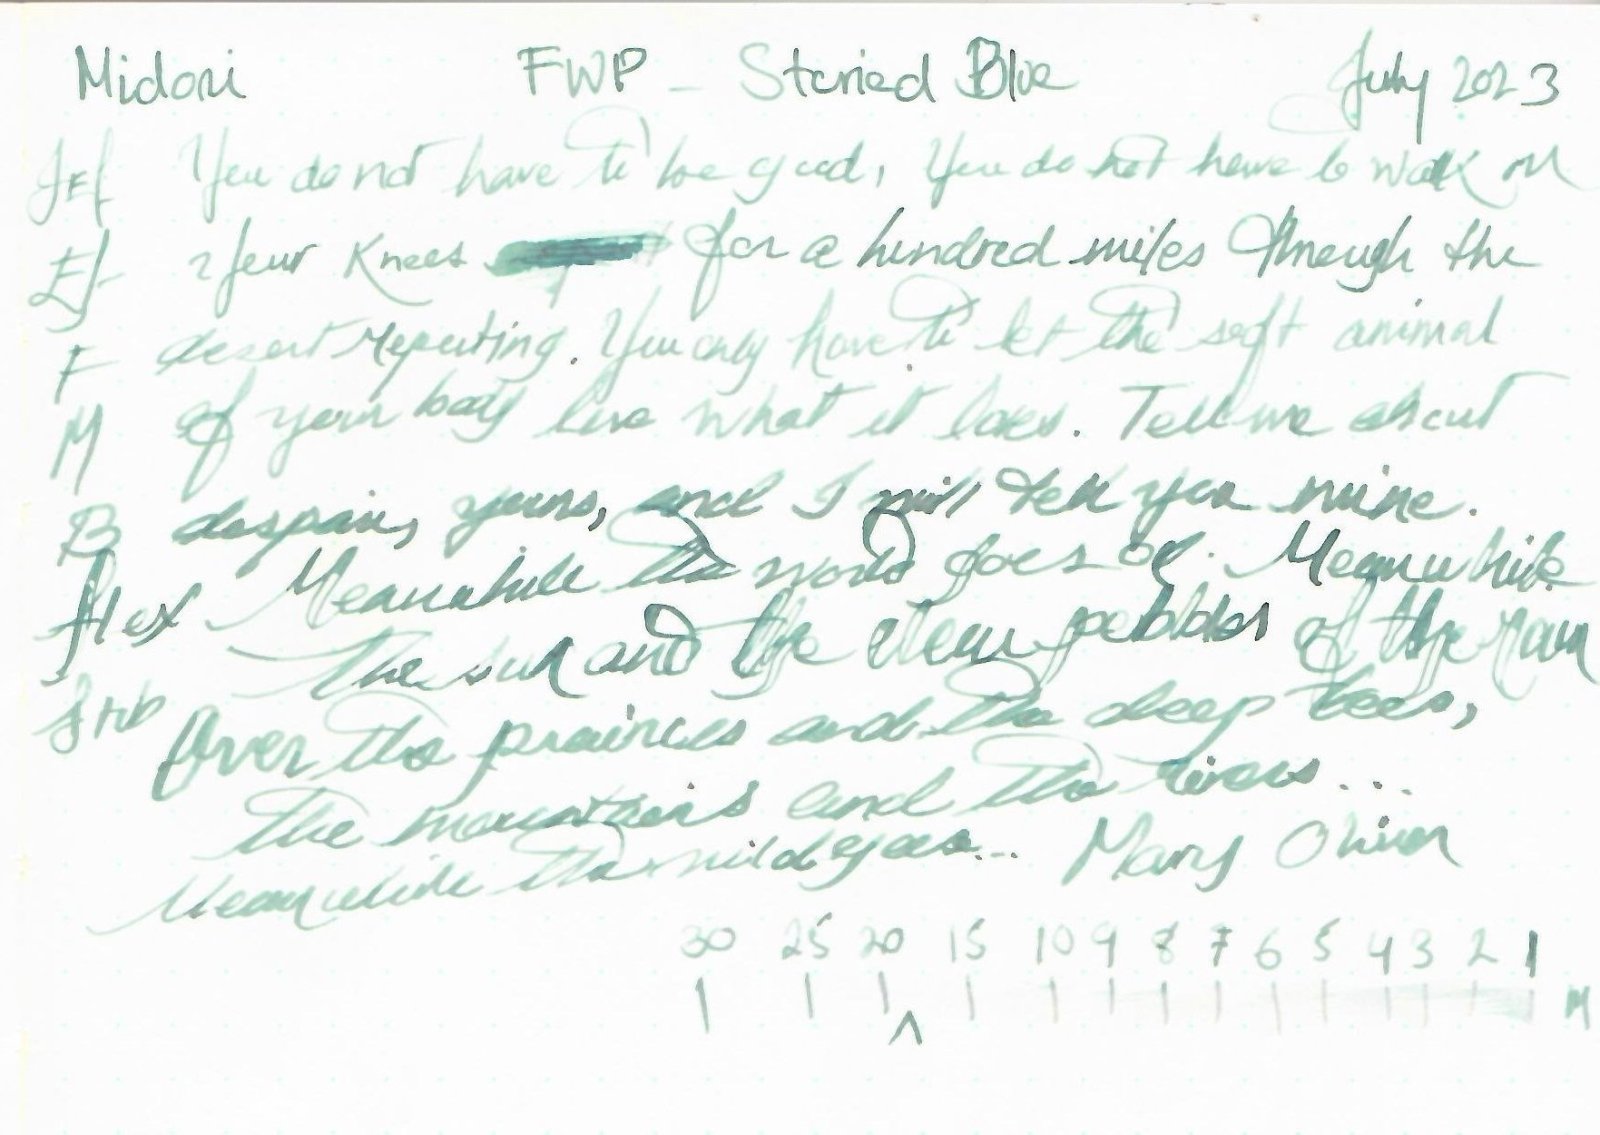 Midori FWP - Storied Blue July 2023
Jef You do not have to be good, You do not have to walk on
Ef Your Knees for a hundred miles through the
F desert repenting. You only have to let the soft animal
M of your body love what it loves. Tell me about
B despair, yours, and I will tell you mine.
flex Meanwhile the world goes on. Meanwhile
The sun and the clear pebbles of the rain
Stub Over the prairies and the deep trees,
the mountains and the rivers...
Meanwhile the wild geese... Mary Oliver
30 25 20 15 10 9 8 7 6 5 4 3 2 1
M